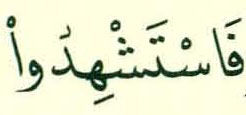 فَاسْتَشْهِدُواْ